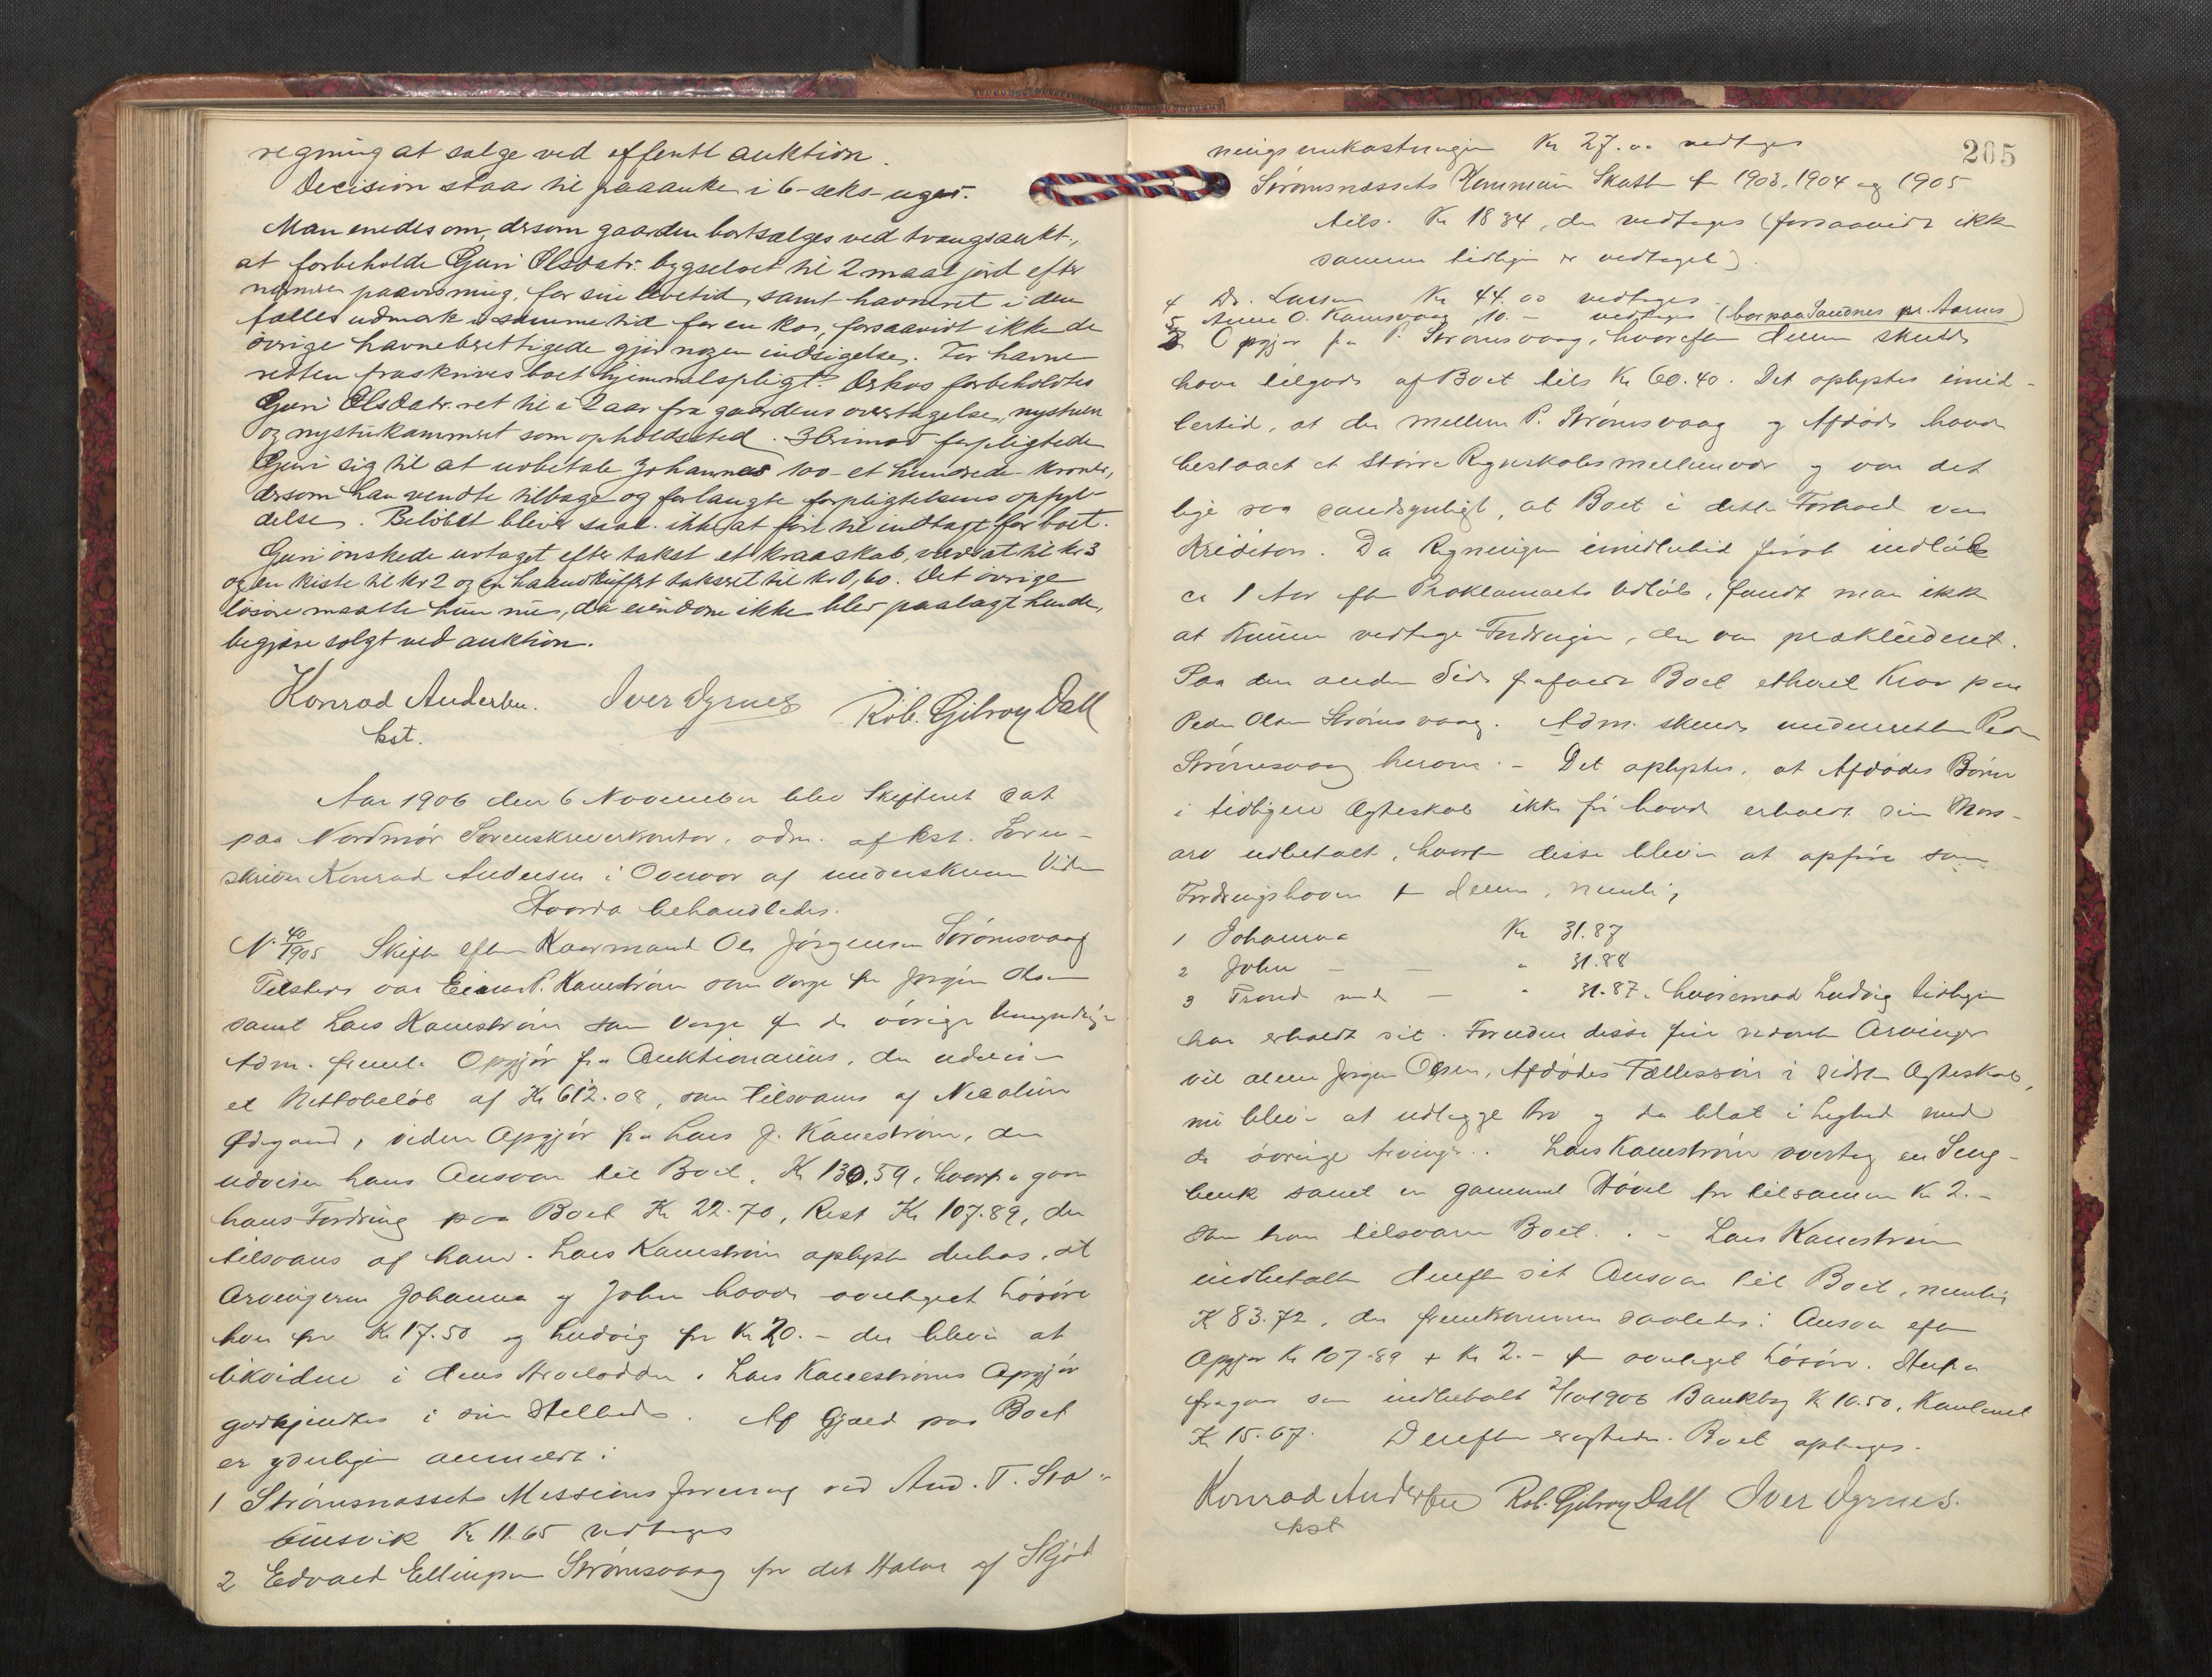 regning at sælge ved offentl auktion.
Decision staar til paaanke i 6-seks-uger.
Man enedes om, dersom gaarden bortsælges ved tvangsaukt.,
at forbeholde Guri Olsdatr. bygselret til 2 maal jord efter
nærmere paavisning, for sin livetid, samt havneret i den
fælles udmark i samme tid for en ko, forsaavidt ikke de
øvrige havneberettigede gjør nogen indsigelse. For havne
retten fraskrives boet hjemmelspligt. Derhos forbeholdtes
Guri Olsdatr. ret til i 2 aar fra gaardens overtagelse, nystuen
og nystukammeret som opholdssted. Herimod forpligtede
Guri sig til at udbetale Johannes 100 - et hundrede kroner,
dersom han vendte tilbage og forlangte forpligtelsens opfyl-
delse. Beløbet bliver saal. ikke at føre til indtægt for boet.
Guri ønskede udtaget efter takst et kraaskab, vurderat til kr 3
og en kiste til kr 2 og en haandkuffert takseret til kr 0,60. Det øvrige
løsøre maatte hun nu, da eiendom ikke blev paalagt hende,
begjære solgt ved auktion.
Konrad Andersen. Iver Ogrnes Rob. Gilroy Dall
kst.
Aar 1906 den 6 November blev Skifteret sat
paa Nordmør Sorenskriverkontor, adm. af kst. Soren-
skriver Konrad Andersen i Overvær af underskrevne Vidner
Hvorda behandledes:
N. 40/1905 Skifte efter Kaarmand Ole Jørgensen Strømsvaag
Tilstede var Einar P. Kanestrøm som Verge for Jørgen Olsen
samt Lars Kanestrøm som Verge for de øvrige Umyndige
Adm. freml. Opgjør fra Auktionarius, der udviser
et Nettobeløb af Kr 612.08, som tilsvares af Nicolai
Ødegaard, videre Opgjør fra Lars J. Kanestrøm, der
udviser hans Ansvar til Boet, Kr 130.59, hvorfra gaar
hans Fordring paa Boet Kr 22.70, Rest Kr 107.89, der
tilsvares af ham. Lars Kanestrøm oplyste derhos, at
Arvingerne Johanna og John havde overtaget Løsøre
hver for Kr 17.50 og Ludvig for Kr 20.- der bliver at
likvidere i deres Arvelodder. Lars Kanestrøms Opgjør
godkjendtes i sin Helhed. Af Gjæld paa Boet
er yderligere anmeldt:
1 Strømsnæssets Missionsforening ved And. T. Sto-
vik Kr 11.65 vedtages
2 Edvard Ellingsen Strømsvaag for det Halve af Skjød
205
nings omkostninger Kr 27.00 vedtages
Strømsnæssets Kommun Skatter for 1903, 1904 og 1905
tils. Kr 18 34, der vedtages (forsaavidt ikke
samme tidligere er vedtaget).
4 Dr. Larsen Kr 44.00 vedtages.
5 Anne O. Kansvaag 10.- vedtages (bor paa Sandnes pr. Aarnes)
Opgjør fra P. Strømsvaag, hvorefter denne skulde
have tilgode af Boet tils Kr 60.40. Det oplystes imid-
lertid, at der mellem P. Strømsvaag og Afdøde havde
bestaaet et større Regnskabsmellemvær og var det
lige saa sandsynligt, at Boet i dette Forhold var
Kreditor. Da Regningen imidlertid først indløb
ca 1 Aar efter Proklamaets Udløb, fandt man ikke
at kunne vedtage Fordringen, der var prækluderet.
Paa den anden Side frafaldt Boet ethvert Krav paa
Peder Olsen Strømsvaag. Adm. skulde underrette Peder
Strømsvaag herom. - Det oplystes, at Afdødes Børn
i tidligere Ægteskab ikke før havde erholdt sin Mors-
arv udbetalt, hvorfor disse bliver at opføre som
Fordringshavere for denne, nemlig
1 Johanna Kr 31.87
2 John — — " 31.88
3 Trond med — " 31.87. hvorimod Ludvig tidligere
har erholdt sit. Foruden disse fire nævnte Arvinger
vil alene Jørgen Olsen, Afdødes Fællessøn i sidste Ægteskab,
nu blive at udlægge Arv og da blot i Lighed med
de øvrige Arvinger. Lars Kanestrøm overtog en Seng-
benk samt en gammel Høvel for tilsammen Kr 2.-
som han tilsvarer Boet. - Lars Kanestrøm
indbetalte derefter sit Ansvar til Boet, nemlig
Kr 83.72, der fremkommer saaledes: Ansvar efter
Opgjør Kr 107.89 + Kr 2.- for overtaget Løsøre. Herfra
fragaar som indbetalt 2/10 1906 Bankbog Kr 10.50, Kontant
Kr 15.67. Derefter Boet optages.
Konrad Andersen Rob. Gilroy Dall Iver Ogrnes.
kst